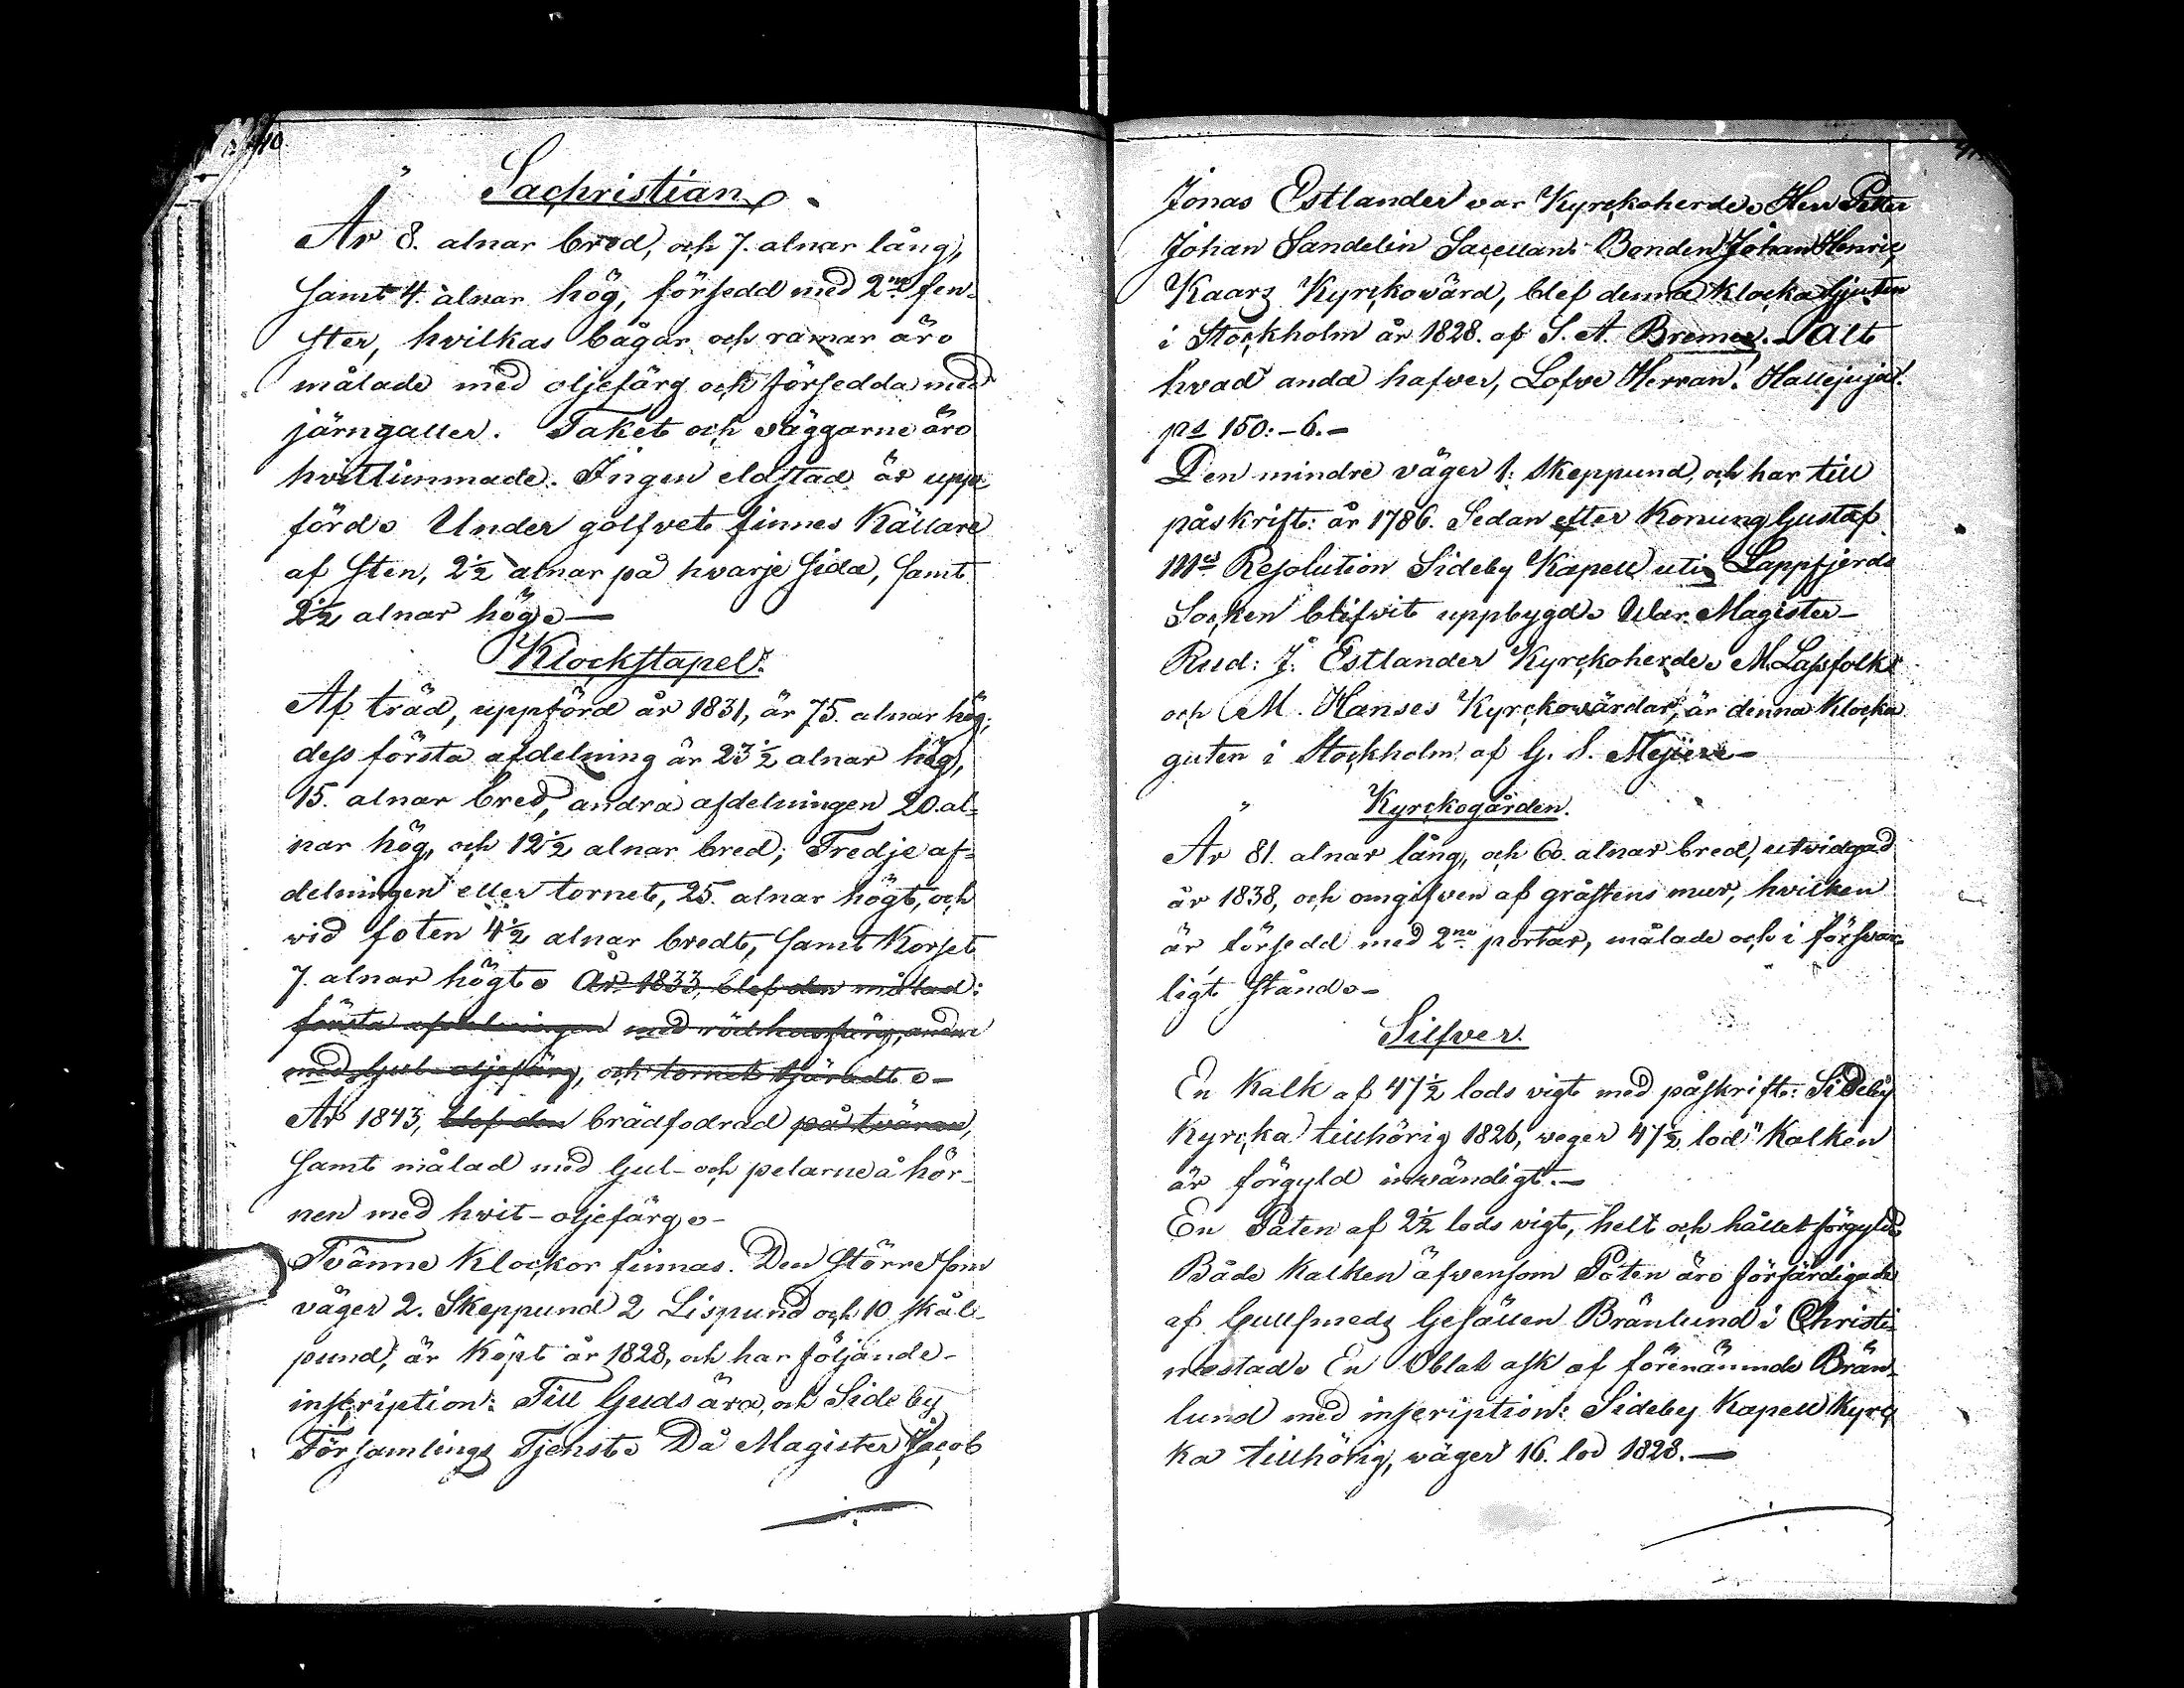 410
Sachristian.
Är 8. alnar bred, och 7. alnar lång,
samt 4. alnar hög, försedd med 2ne fen-
ster, hvilkas bågar och ramar äro
målade med oljefärg och försedda med
järngaller. Taket och väggarne äro
hvitlimmade. Ingen eldstad är upp-
förd. Under golfvet finnes Källare
af sten, 2½ alnar på hvarje sida, samt
2½ alnar hög.—
Klockstapel.
Af träd, uppförd år 1831, är 75. alnar hög;
dess första afdelning är 23½ alnar hög,
15. alnar bred, andra afdelningen 20. al-
nar hög, och 12½ alnar bred; Tredje af-
delningen eller tornet, 25. alnar högt, och
vid foten 4½ alnar bredt, samt Korset
7. alnar högt. År 1833, blef den målad:
första afdelningen med rödkowfärg, andra
med Gul-oljefärg, och tornet tjäradt.—
År 1843, blef den brädfodrad på tvären,
samt målad med Gul- och pelarne å hör-
nen med hvit-oljefärg.—
Tvänne Klockor finnas. Den större som
väger 2. Skeppund 2 Lispund och 10 skål-
pund, är Köpt år 1828, och har följande-
inscription: Till Guds ära, och Sideby
Församlings Tjenst. Då Magister Jacob
Jonas Estlander var Kyrckoherde, Herr Petter
Johan Sandelin Sacellan: Bonden Johan Henric
Kaars Kyrckovärd, blef denna Klocka Gjuten
i Stockholm år 1828. af S. A. Bremer.- Alt
hvad anda hafver, Lofve Herran! Hallejuja!
ps 150:-6.-
Den mindre väger 1: Skeppund, och har till
påskrift: år 1786. Sedan efter Konung Gustaf
IIIs Resolution Sideby Kapell uti Lappfjerds
Socken blifvit uppbygd. War Magister-
Rud: J. Estlander Kyrckoherde. M. Lassfolk
och M. Hanses Kyrckovärdar, är denna Klocka
guten i Stockholm af G. S. Mejier-
Kyrckogården.
Är 81. alnar lång, och 60. alnar bred, utvidgad
år 1838, och omgifven af gråstens mur, hvilken
är försedd med 2ne portar, målade och i försvar-
ligt stånd.-
Silfver.
En Kalk af 47½ lods vigt med påskrift: Sideby
Kyrcka tillhörig 1826, weger 47½ lod" Kalken
är förgyld invändigt.—
En Paten af 2½ lods vigt, helt och hållet förgyld
Både Kalken äfvensom Paten äro förfärdigade
af Gullsmeds Gesällen Bränlund i Christi-
nestad. En Oblat ask af förenämnde Brän-
lund med inscription: Sideby Kapell Kyrc
ka tillhörig, wäger 16. lod 1828.—